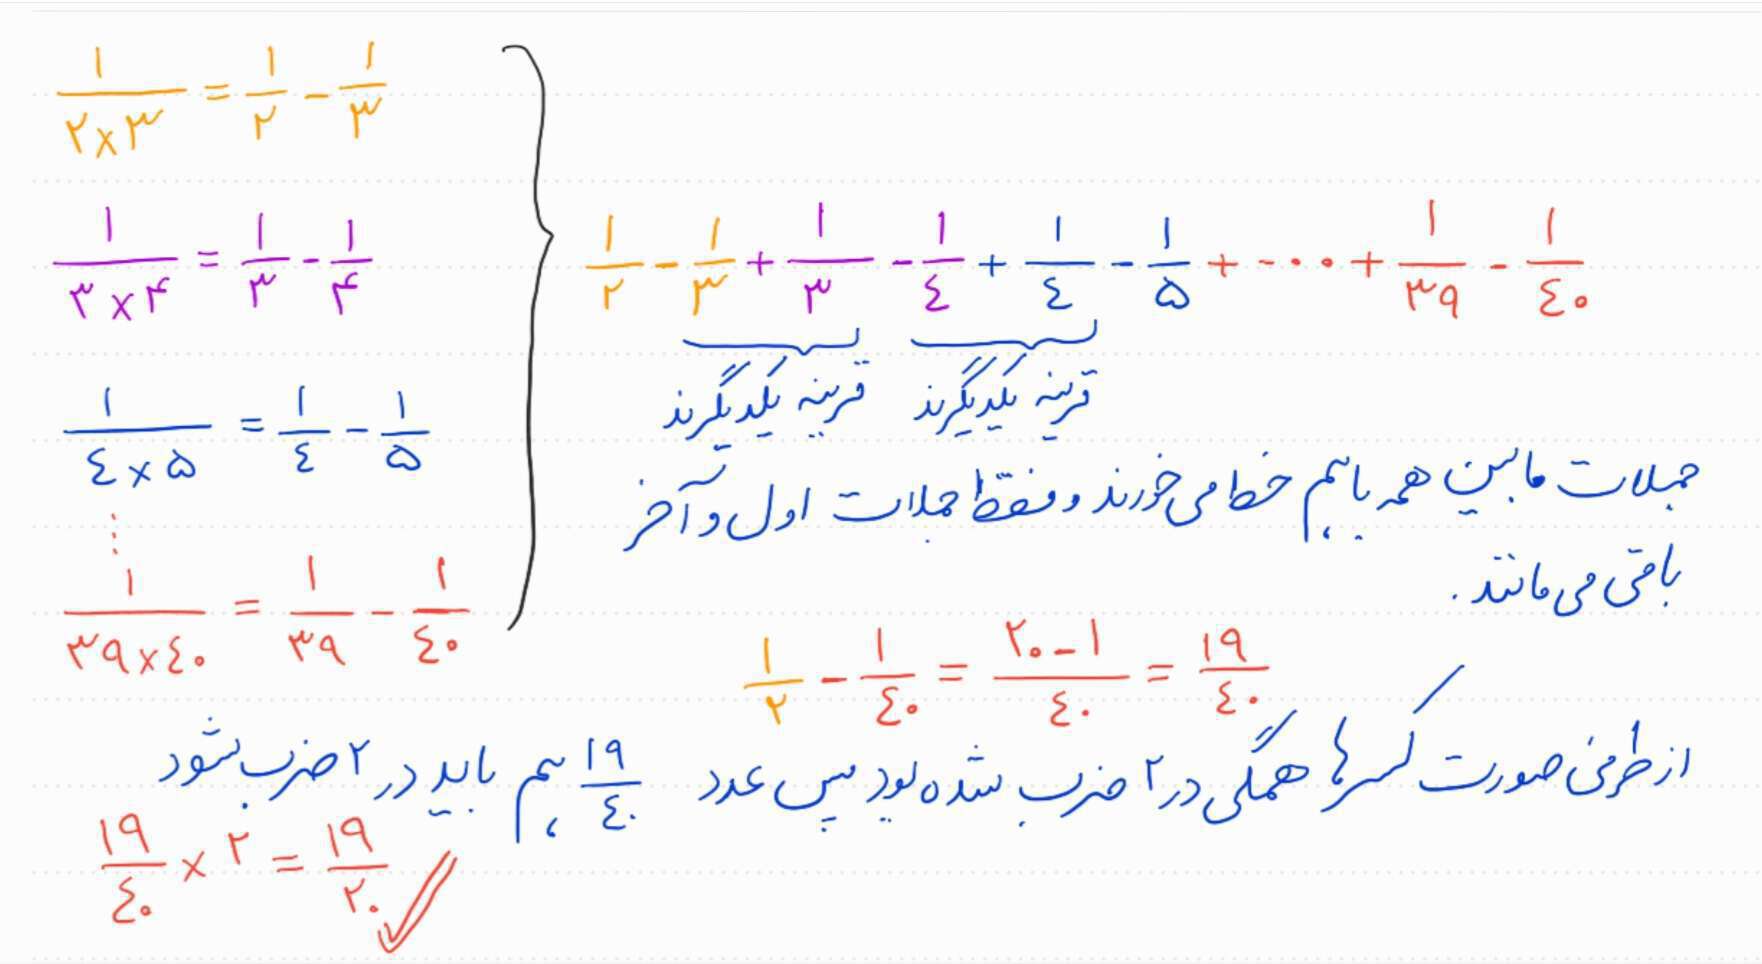 ۱/(۲×۳) = ۱/۲ - ۱/۳
۱/(۳×۴) = ۱/۳ - ۱/۴
۱/(٤×۵) = ۱/٤ - ۱/۵
⋮
۱/(۳۹×٤۰) = ۱/۳۹ - ۱/٤۰
۱/۲ - ۱/۳ + ۱/۳ - ۱/٤ + ۱/٤ - ۱/۵ + ... + ۱/۳۹ - ۱/٤۰
قرینه یکدیگرند قرینه یکدیگرند
جملات مابین همه باهم خط می‌خورند و فقط جملات اول و آخر
باقی می‌مانند.
۱/۲ - ۱/٤۰ = (۲۰-۱)/٤۰ = ۱۹/٤۰
از طرفی صورت کسرها همگی در ۲ ضرب شده بود پس عدد ۱۹/٤۰ هم باید در ۲ ضرب شود
۱۹/٤۰ × ۲ = ۱۹/۲۰